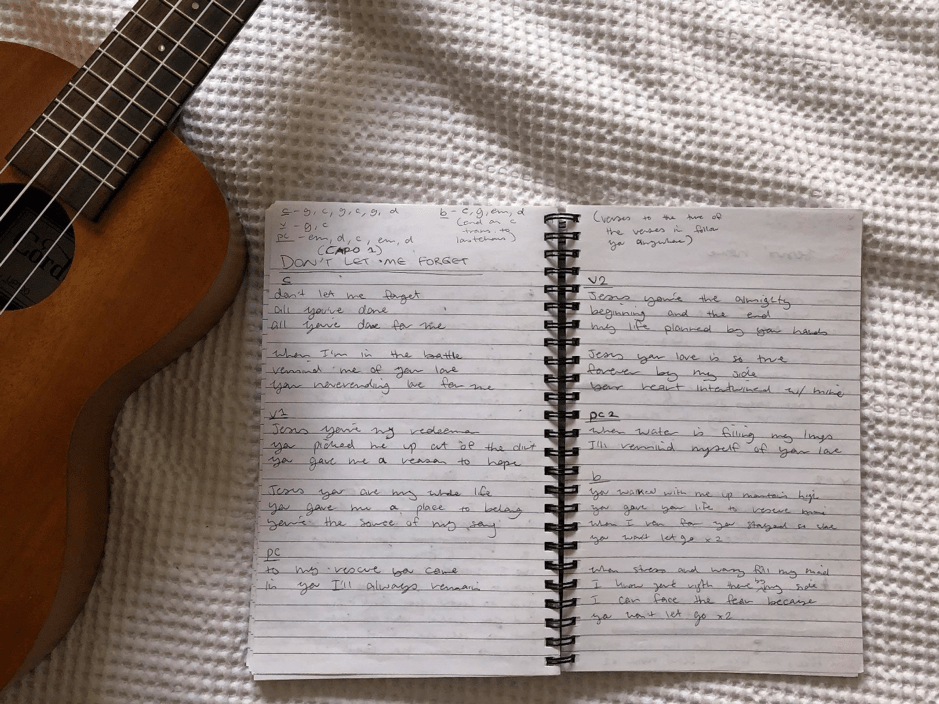 c - g, c, g, c, g, d
v - g, c
pc - em, d, c, em, d
(CAPO 1)
b - c, g, em, d
(end on c
trans. to
last chorus)
DON'T LET ME FORGET
c
don't let me forget
all you've done
all you've done for me
when I'm in the battle
remind me of your love
your neverending love for me
v1
Jesus you're my redeemer
you picked me up out of the dirt
you gave me a reason to hope
Jesus you are my whole life
you gave me a place to belong
you're the source of my song
pc
to my rescue you came
in you I'll always remain
(verses to the tune of
the verses in follow
you anywhere)
V2
Jesus you're the almighty
beginning and the end
my life planned by your hands
Jesus your love is so true
forever by my side
your heart intertwined w/ mine
pc2
when water is filling my lungs
I'll remind myself of your love
b
you walked with me up mountain high
you gave your life to rescue mine
when I ran far you stayed
you won't let go x2
when stress and worry fill my mind
I know you're right there by my side
I can face the fear because
you won't let go x2